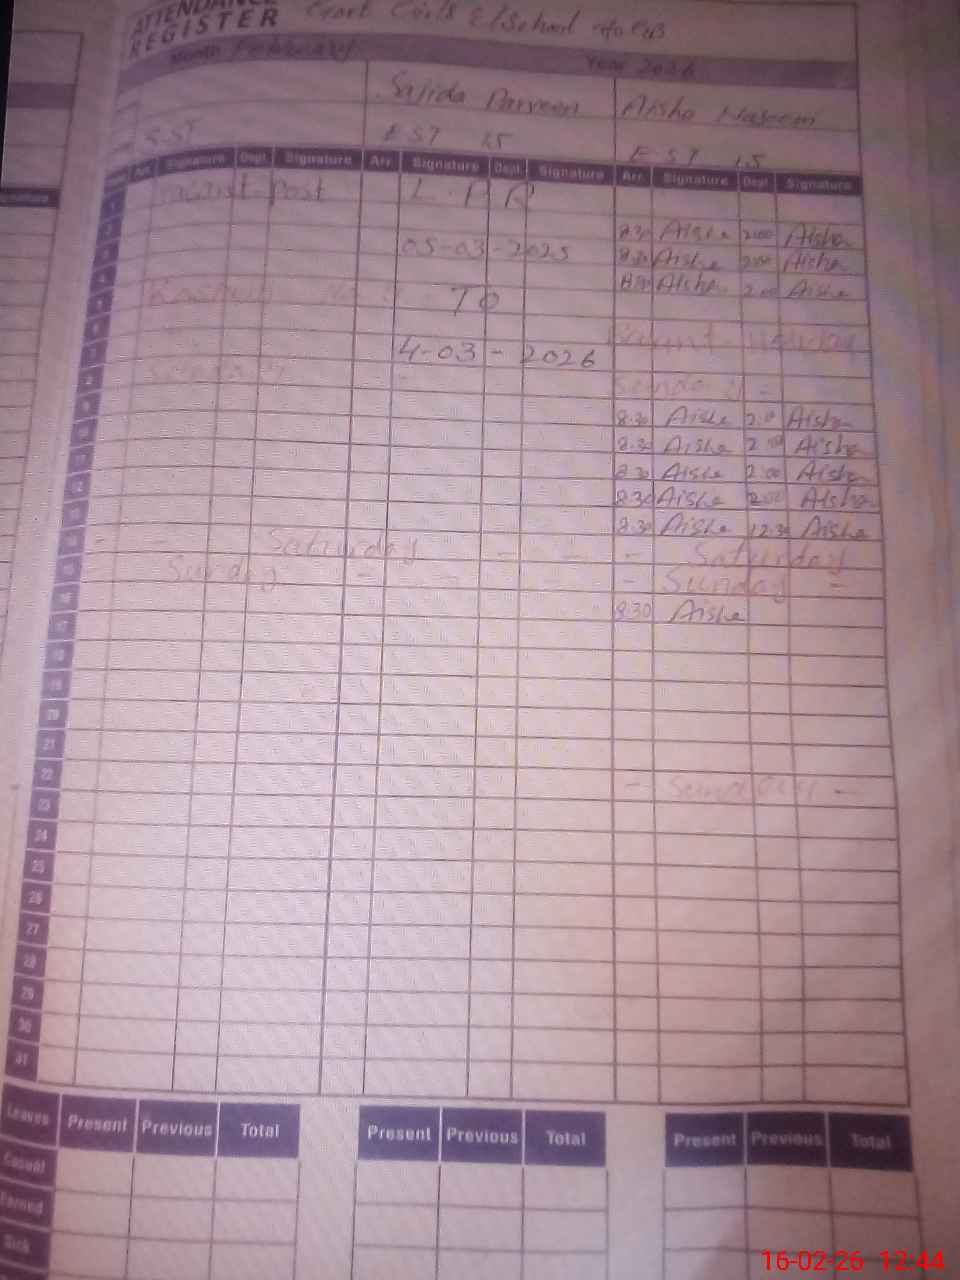 ATTENDANCE
REGISTER
Govt Girls E/School
Month February Year 2026
Sajida Parveen Aisha Naseem
S.ST EST 15 EST 15
Arr. Signature Dept. Signature Arr. Signature Dept. Signature Arr. Signature Dept. Signature
1 Vacant Post L.P.R
2 8.30 Aisha 2.00 Aisha
3 05-03-2025 8.30 Aisha 2.00 Aisha
4 Aisha 2.00 Aisha
5 Kashmir TO
6
7 4-03-2026
8 Sunday Sunday -
9 8.30 Aisha 2.0 Aisha
10 8.30 Aisha 2.00 Aisha
11 8.30 Aisha 2.00 Aisha
12 8.30 Aisha 2.00 Aisha
13 8.30 Aisha 12.30 Aisha
14 - - Saturday - - - Saturday
15 Sunday - - Sunday -
16 8.30 Aisha
17
18
19
20
21
22 - Sunday -
23
24
25
26
27
28
29
30
31
Leaves Present Previous Total Present Previous Total Present Previous Total
Casual
Earned
Sick
16-02-26 12:44